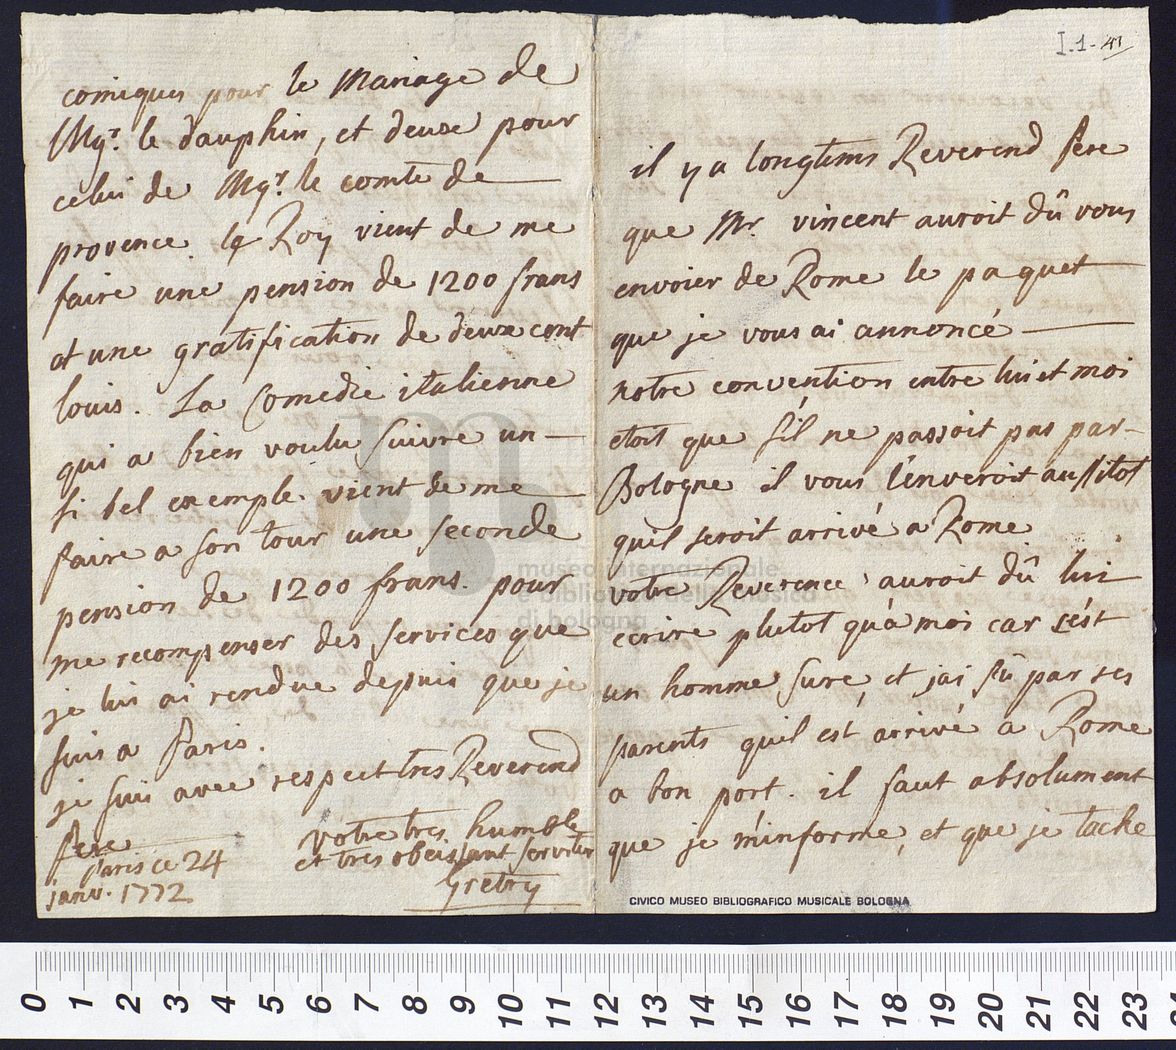 I.1-41
il y a longtems Reverend Pere
que Mr. vincent auroit dû vous
envoier de Rome le paquet
que je vous ai annoncé
notre convention entre lui et moi
etoit que s'il ne passoit pas par
Bologne il vous l'enveroit aussitot
quil seroit arrivé a Rome
votre Reverence auroit dû lui
ecrire plutot qu'a moi car c'est
un homme sure, et jai sû par ses
parents quil est arrivé a Rome
a bon port. il faut absolument
que je m'informe, et que je tache
CIVICO MUSEO BIBLIOGRAFICO MUSICALE BOLOGNA
comiques pour le Mariage de
Mgr. le dauphin, et deuxe pour
celui de Mgr. le comte de
provence. le Roy vient de me
faire une pension de 1200 frans
et une gratification de deuxe cent
louis. La Comedie italienne
qui a bien voulu suivre un
si bel exemple. vient de me
faire a son tour une seconde
pension de 1200 frans. pour
me recompenser des services que
je lui ai rendue depuis que je
suis a Paris.
je suis avec respect tres Reverend
Pere
votre tres humble
et tres obeissant serviteur
Gretry
Paris ce 24
janv. 1772
museo internazionale
e biblioteca della musica
di bologna
0 1 2 3 4 5 6 7 8 9 10 11 12 13 14 15 16 17 18 19 20 21 22 23